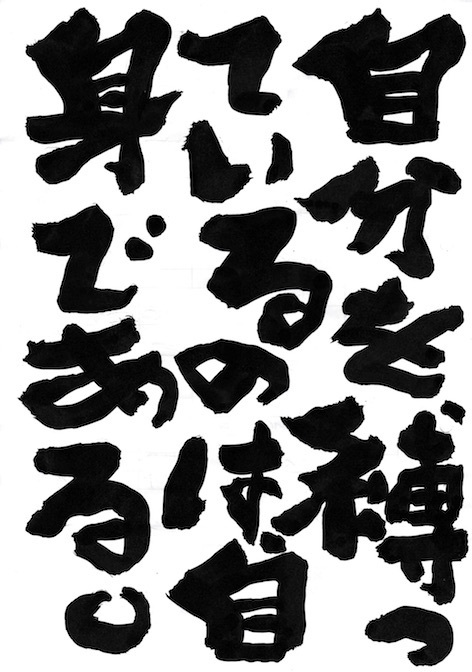 自分を縛っ
ているのは、自
身である。